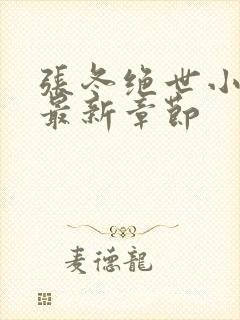 張冬绝世小
最新章節
麦德龍